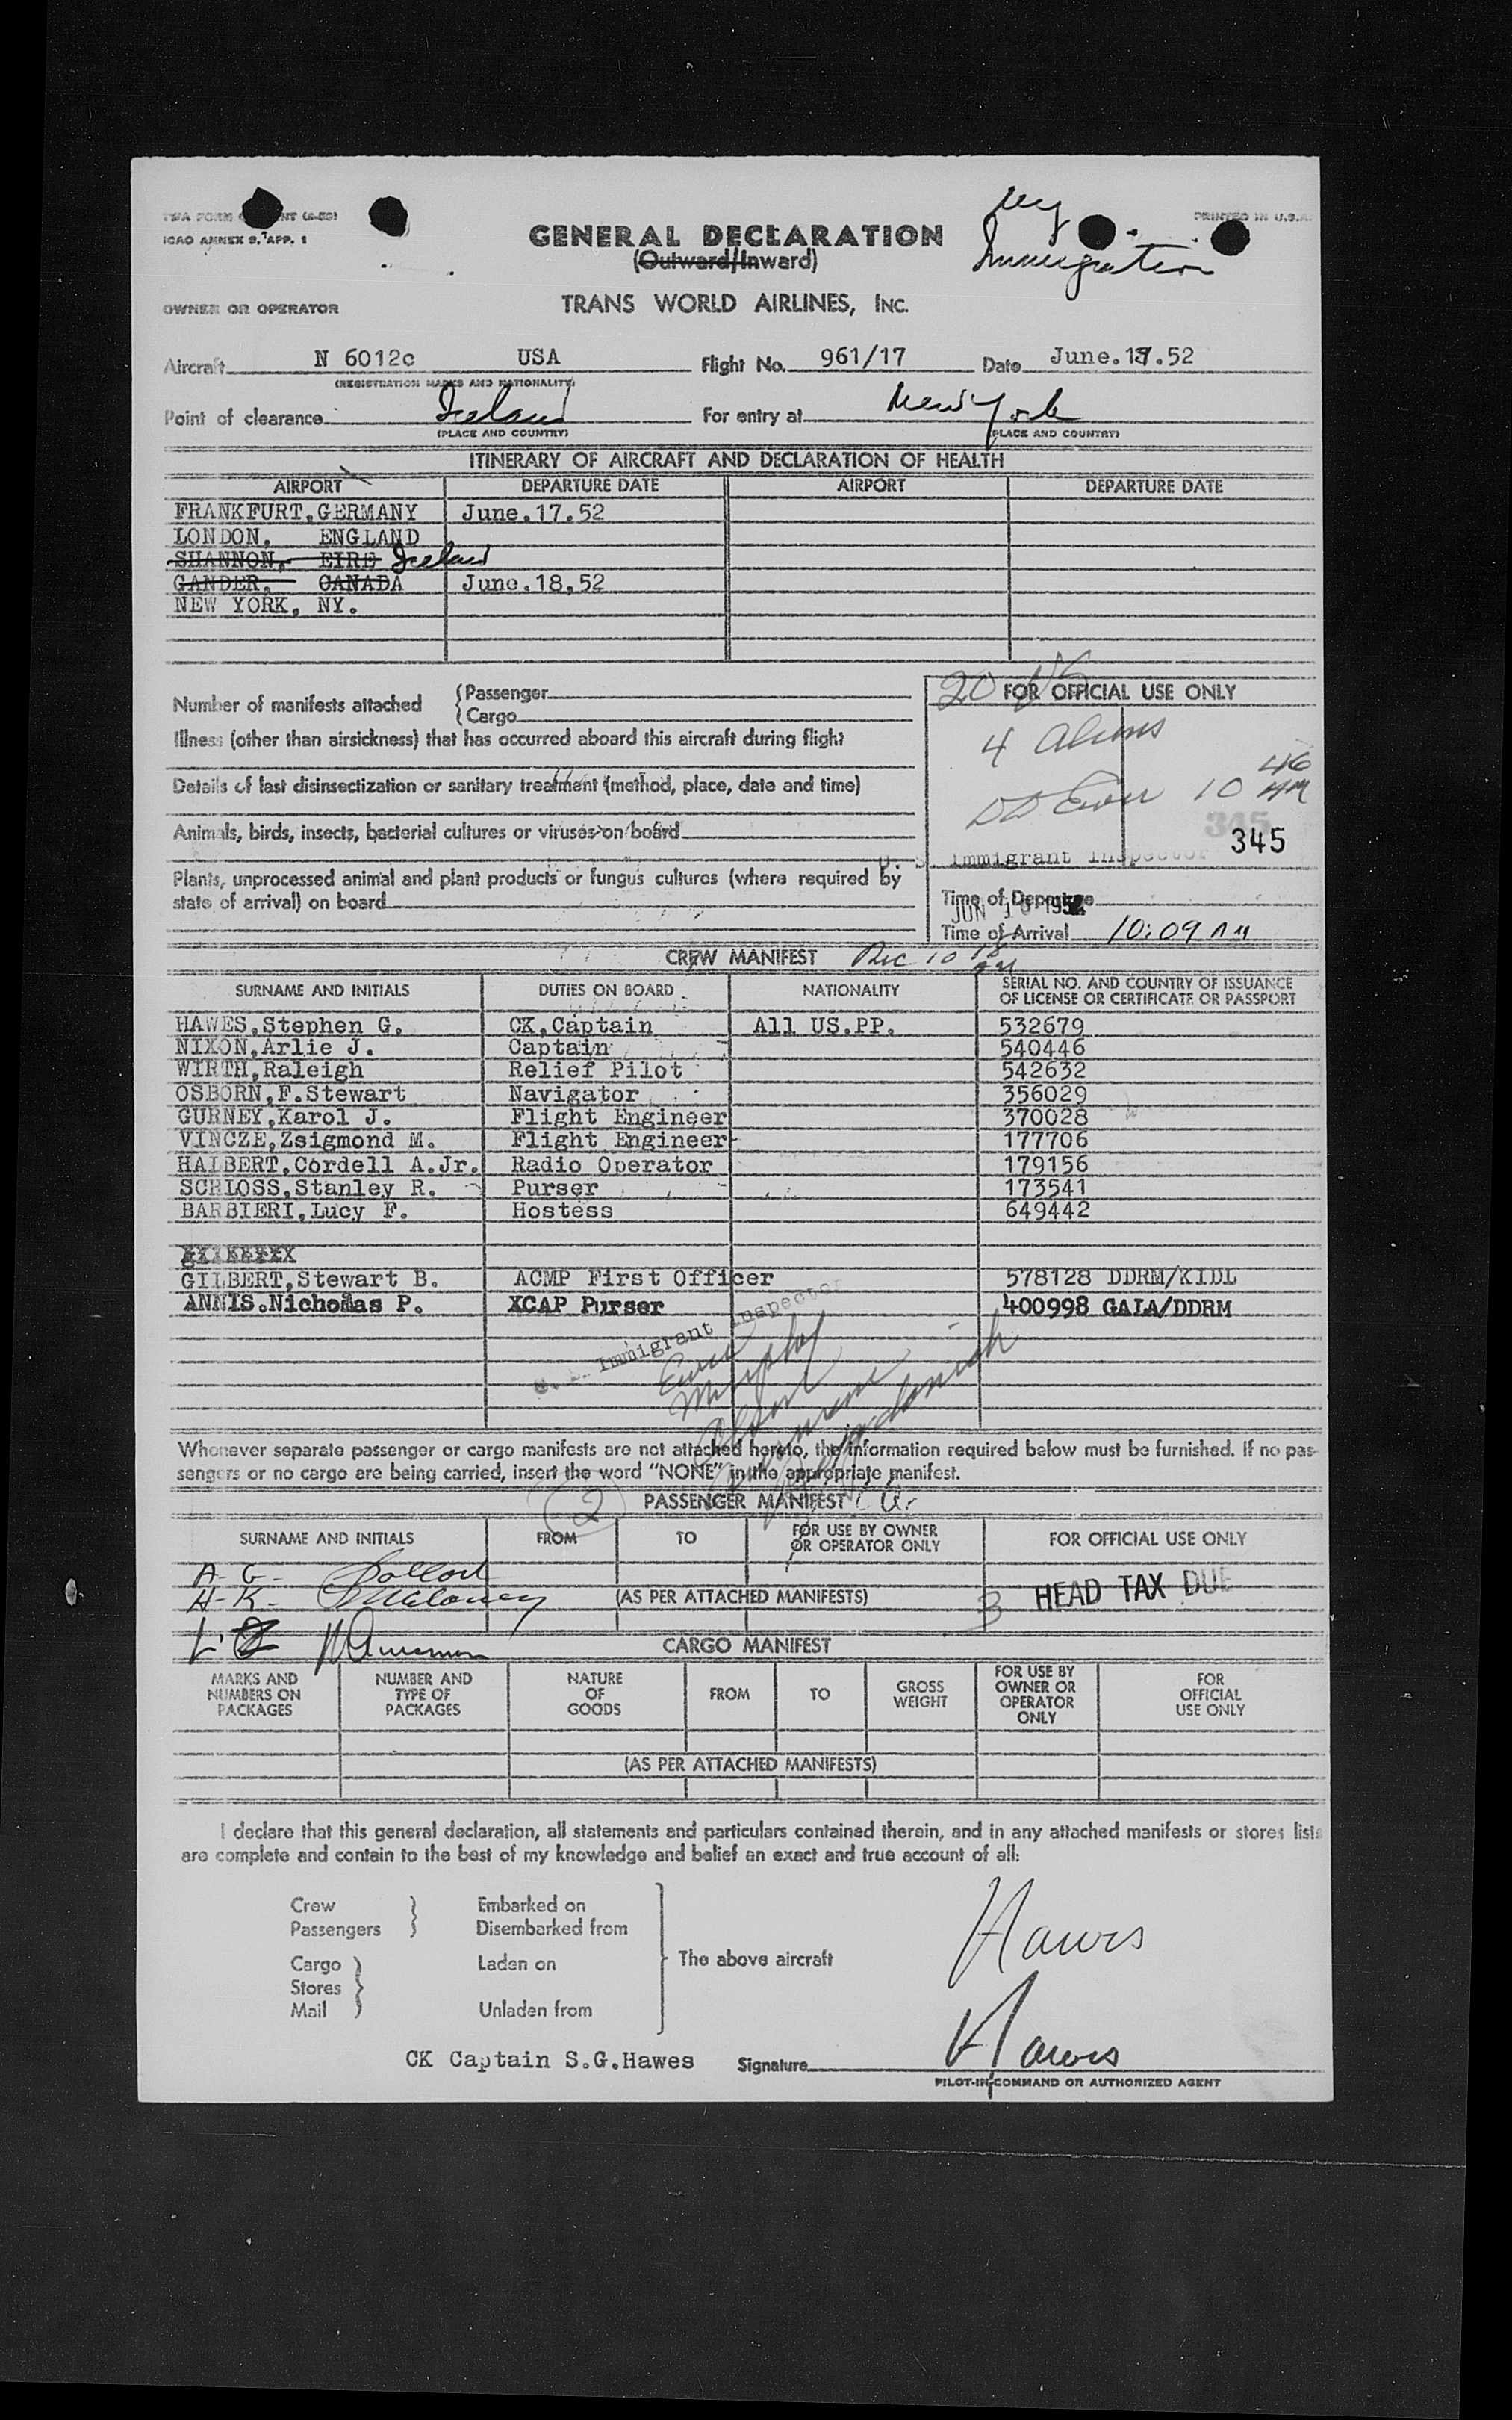 ICAO ANNEX 9, APP. 1
PRINTED IN U.S.A.
GENERAL DECLARATION
(Outward/Inward)
Immigration
OWNER OR OPERATOR TRANS WORLD AIRLINES, INC.
Aircraft N 6012c USA Flight No. 961/17 Date June.17.52
(REGISTRATION MARKS AND NATIONALITY)
Point of clearance Iceland For entry at New York
(PLACE AND COUNTRY) (PLACE AND COUNTRY)
ITINERARY OF AIRCRAFT AND DECLARATION OF HEALTH
AIRPORT DEPARTURE DATE AIRPORT DEPARTURE DATE
FRANKFURT,GERMANY June.17.52
LONDON, ENGLAND
SHANNON, EIRE Iceland
GANDER, CANADA June.18.52
NEW YORK, NY.
Number of manifests attached (Passenger
(Cargo
20 US
FOR OFFICIAL USE ONLY
4 Aliens
Illness (other than airsickness) that has occurred aboard this aircraft during flight
Details of last disinsectization or sanitary treatment (method, place, date and time)
10 46 AM
345
345
Animals, birds, insects, bacterial cultures or viruses on board
U. S. Immigrant Inspector
Plants, unprocessed animal and plant products or fungus cultures (where required by
state of arrival) on board
Time of Departure
JUN 18 1952
Time of Arrival 10:09 AM
CREW MANIFEST Rec 10 18 AM
SURNAME AND INITIALS DUTIES ON BOARD NATIONALITY SERIAL NO. AND COUNTRY OF ISSUANCE
OF LICENSE OR CERTIFICATE OR PASSPORT
HAWES,Stephen G. CK,Captain All US.PP. 532679
NIXON,Arlie J. Captain 540446
WIRTH,Raleigh Relief Pilot 542632
OSBORN,F.Stewart Navigator 356029
GURNEY,Karol J. Flight Engineer 370028
VINCZE,Zsigmond M. Flight Engineer 177706
HALBERT,Cordell A.Jr. Radio Operator 179156
SCHLOSS,Stanley R. Purser 173541
BARBIERI,Lucy F. Hostess 649442
GILBERT,Stewart B. ACMP First Officer 578128 DDRM/KIDL
ANNIS.Nicholas P. XCAP Purser 400998 GALA/DDRM
U. S. Immigrant Inspector
Murphy
Whenever separate passenger or cargo manifests are not attached hereto, the information required below must be furnished. If no pas-
sengers or no cargo are being carried, insert the word "NONE" in the appropriate manifest.
2
PASSENGER MANIFEST
SURNAME AND INITIALS FROM TO FOR USE BY OWNER
OR OPERATOR ONLY FOR OFFICIAL USE ONLY
A-G-
H-K-
(AS PER ATTACHED MANIFESTS)
3 HEAD TAX DUE
CARGO MANIFEST
MARKS AND
NUMBERS ON
PACKAGES
NUMBER AND
TYPE OF
PACKAGES
NATURE
OF
GOODS
FROM
TO
GROSS
WEIGHT
FOR USE BY
OWNER OR
OPERATOR
ONLY
FOR
OFFICIAL
USE ONLY
(AS PER ATTACHED MANIFESTS)
I declare that this general declaration, all statements and particulars contained therein, and in any attached manifests or stores lists
are complete and contain to the best of my knowledge and belief an exact and true account of all:
Crew Embarked on
Passengers Disembarked from
Cargo Laden on The above aircraft
Stores
Mail Unladen from
Hawes
CK Captain S.G.Hawes Signature Hawes
PILOT-IN-COMMAND OR AUTHORIZED AGENT